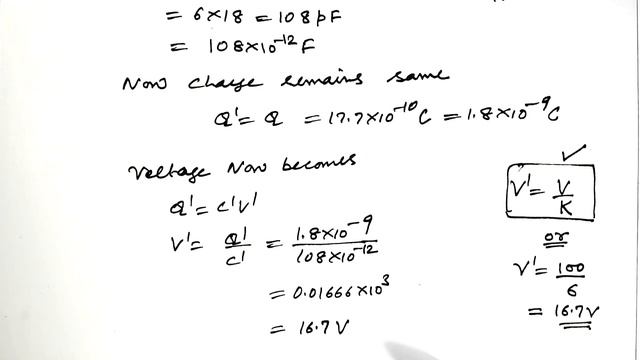 = 6×18 = 108 pF
= 108×10⁻¹² F
Now charge remains same
Q' = Q = 17.7×10⁻¹⁰ C = 1.8×10⁻⁹ C
Voltage Now becomes
Q' = C'V'
V' = Q'/C' = 1.8×10⁻⁹/108×10⁻¹²
= 0.01666×10³
= 16.7 V
V' = V/K
or
V' = 100/6
= 16.7V